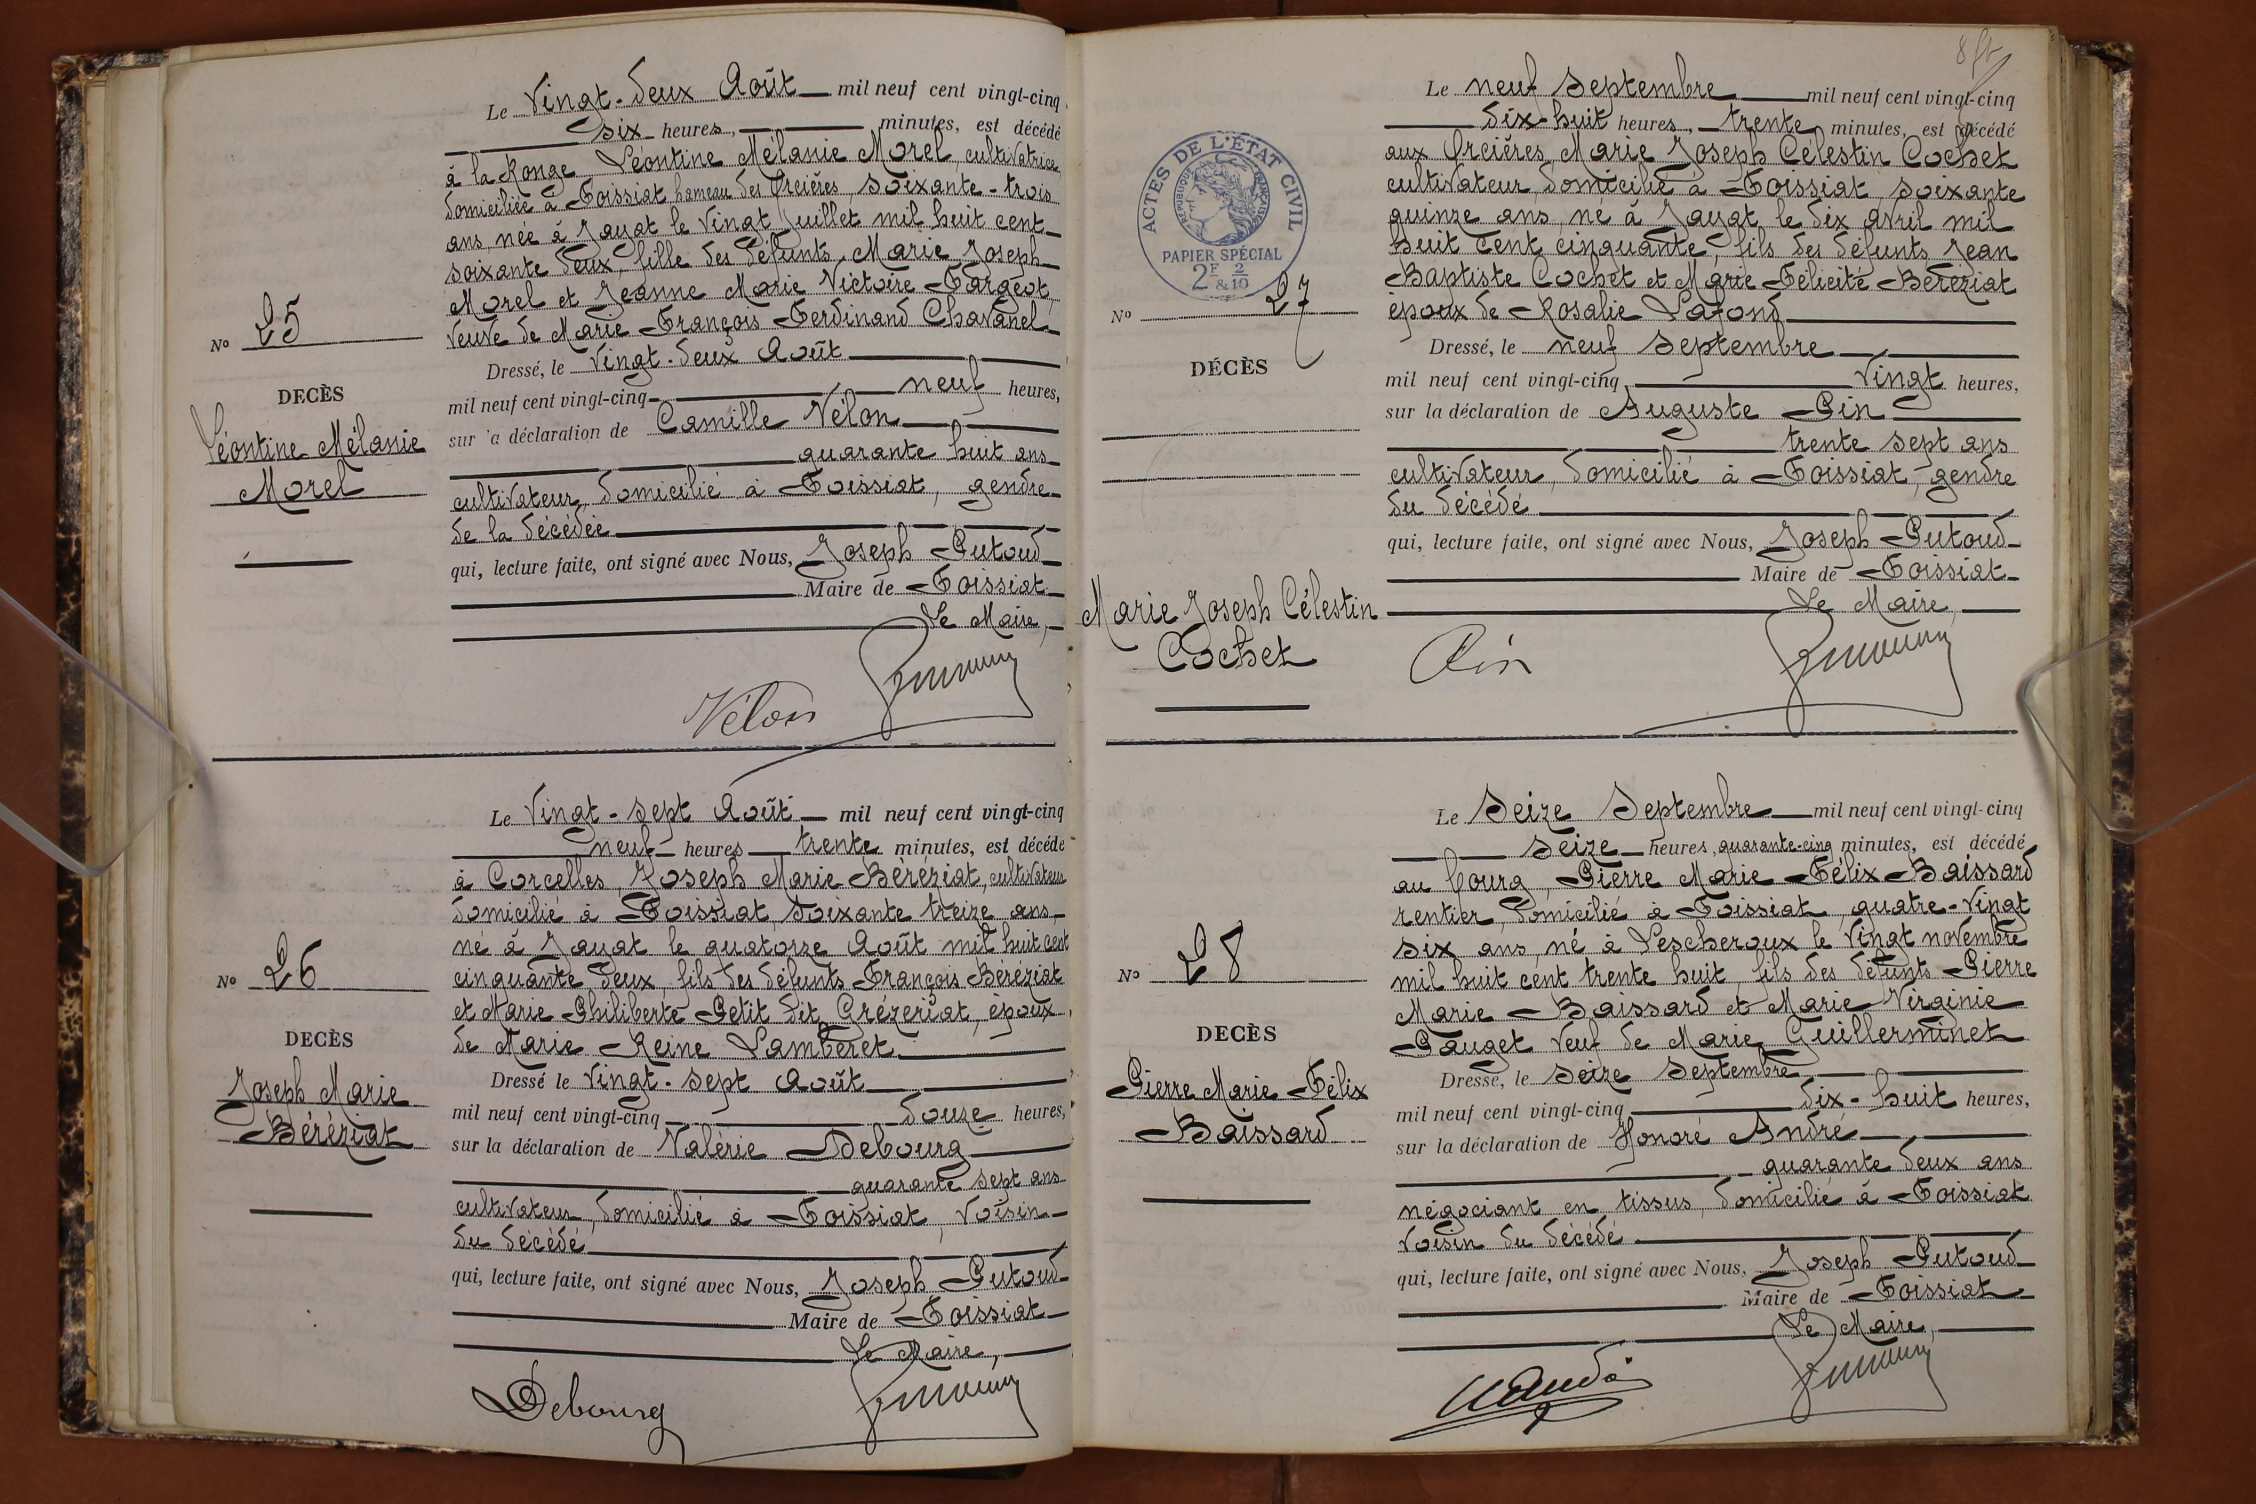 Le Vingt-deux Août mil neuf cent vingt-cinq
six heures, minutes, est décédé
à la Ronge Léontine Mélanie Morel, cultivatrice
domiciliée à Foissiat hameau des Orcières, soixante-trois
ans née à Jayat le vingt Juillet mil huit cent
soixante deux, fille des défunts Marie Joseph
Morel et Jeanne Marie Victoire Fargeot,
veuve de Marie François Ferdinand Chavanel
Dressé, le vingt-deux Août
mil neuf cent vingt-cinq neuf heures,
sur la déclaration de Camille Vélon
quarante huit ans
cultivateur, domicilié à Foissiat, gendre
de la décédée
qui, lecture faite, ont signé avec Nous, Joseph Putoud
Maire de Foissiat
Le Maire,
Vélon
No 25
DECÈS
Léontine Mélanie
Morel
Le Vingt-sept Août mil neuf cent vingt-cinq
neuf heures trente minutes, est décédé
à Corcelles, Joseph Marie Béréziat, cultivateur
domicilié à Foissiat, soixante treize ans
né à Jayat le quatorze Août mil huit cent
cinquante deux, fils des défunts François Béréziat
et Marie Philiberte Petit dit Grézériat, époux
de Marie Reine Lambéret
Dressé le vingt-sept Août
mil neuf cent vingt-cinq douze heures,
sur la déclaration de Valérie Debourg
quarante sept ans
cultivateur, domicilié à Foissiat, voisin
du décédé
qui, lecture faite, ont signé avec Nous, Joseph Putoud
Maire de Foissiat
Le Maire,
Debourg
No 26
DECÈS
Joseph Marie
Béréziat
ACTES DE L'ÉTAT CIVIL
RÉPUBLIQUE FRANÇAISE
PAPIER SPÉCIAL
2F 2/10
& 10
Le neuf septembre mil neuf cent vingt-cinq
dix-huit heures, trente minutes, est décédé
aux Orcières, Marie Joseph Célestin Cochet
cultivateur, domicilié à Foissiat, soixante
quinze ans, né à Jayat le dix avril mil
huit cent cinquante, fils des défunts Jean
Baptiste Cochet et Marie Félicité Béréziat
époux de Rosalie Lafond
Dressé, le neuf septembre
mil neuf cent vingt-cinq vingt heures,
sur la déclaration de Auguste Pin
trente sept ans
cultivateur, domicilié à Foissiat, gendre
du décédé
qui, lecture faite, ont signé avec Nous, Joseph Putoud
Maire de Foissiat
Le Maire,
Pin
No 27
DÉCÈS
Marie Joseph Célestin
Cochet
Le Seize Septembre mil neuf cent vingt-cinq
seize heures, quarante-cinq minutes, est décédé
au bourg, Pierre Marie Félix Baissard
rentier, domicilié à Foissiat, quatre-vingt
six ans, né à Lescheroux le vingt novembre
mil huit cent trente huit, fils des défunts Pierre
Marie Baissard et Marie Virginie
Pauget veuf de Marie Guillerminet
Dressé, le seize septembre
mil neuf cent vingt-cinq dix-huit heures,
sur la déclaration de Honoré André
quarante deux ans
négociant en tissus, domicilié à Foissiat
voisin du décédé
qui, lecture faite, ont signé avec Nous, Joseph Putoud
Maire de Foissiat
Le Maire,
No 28
DECÈS
Pierre Marie Félix
Baissard